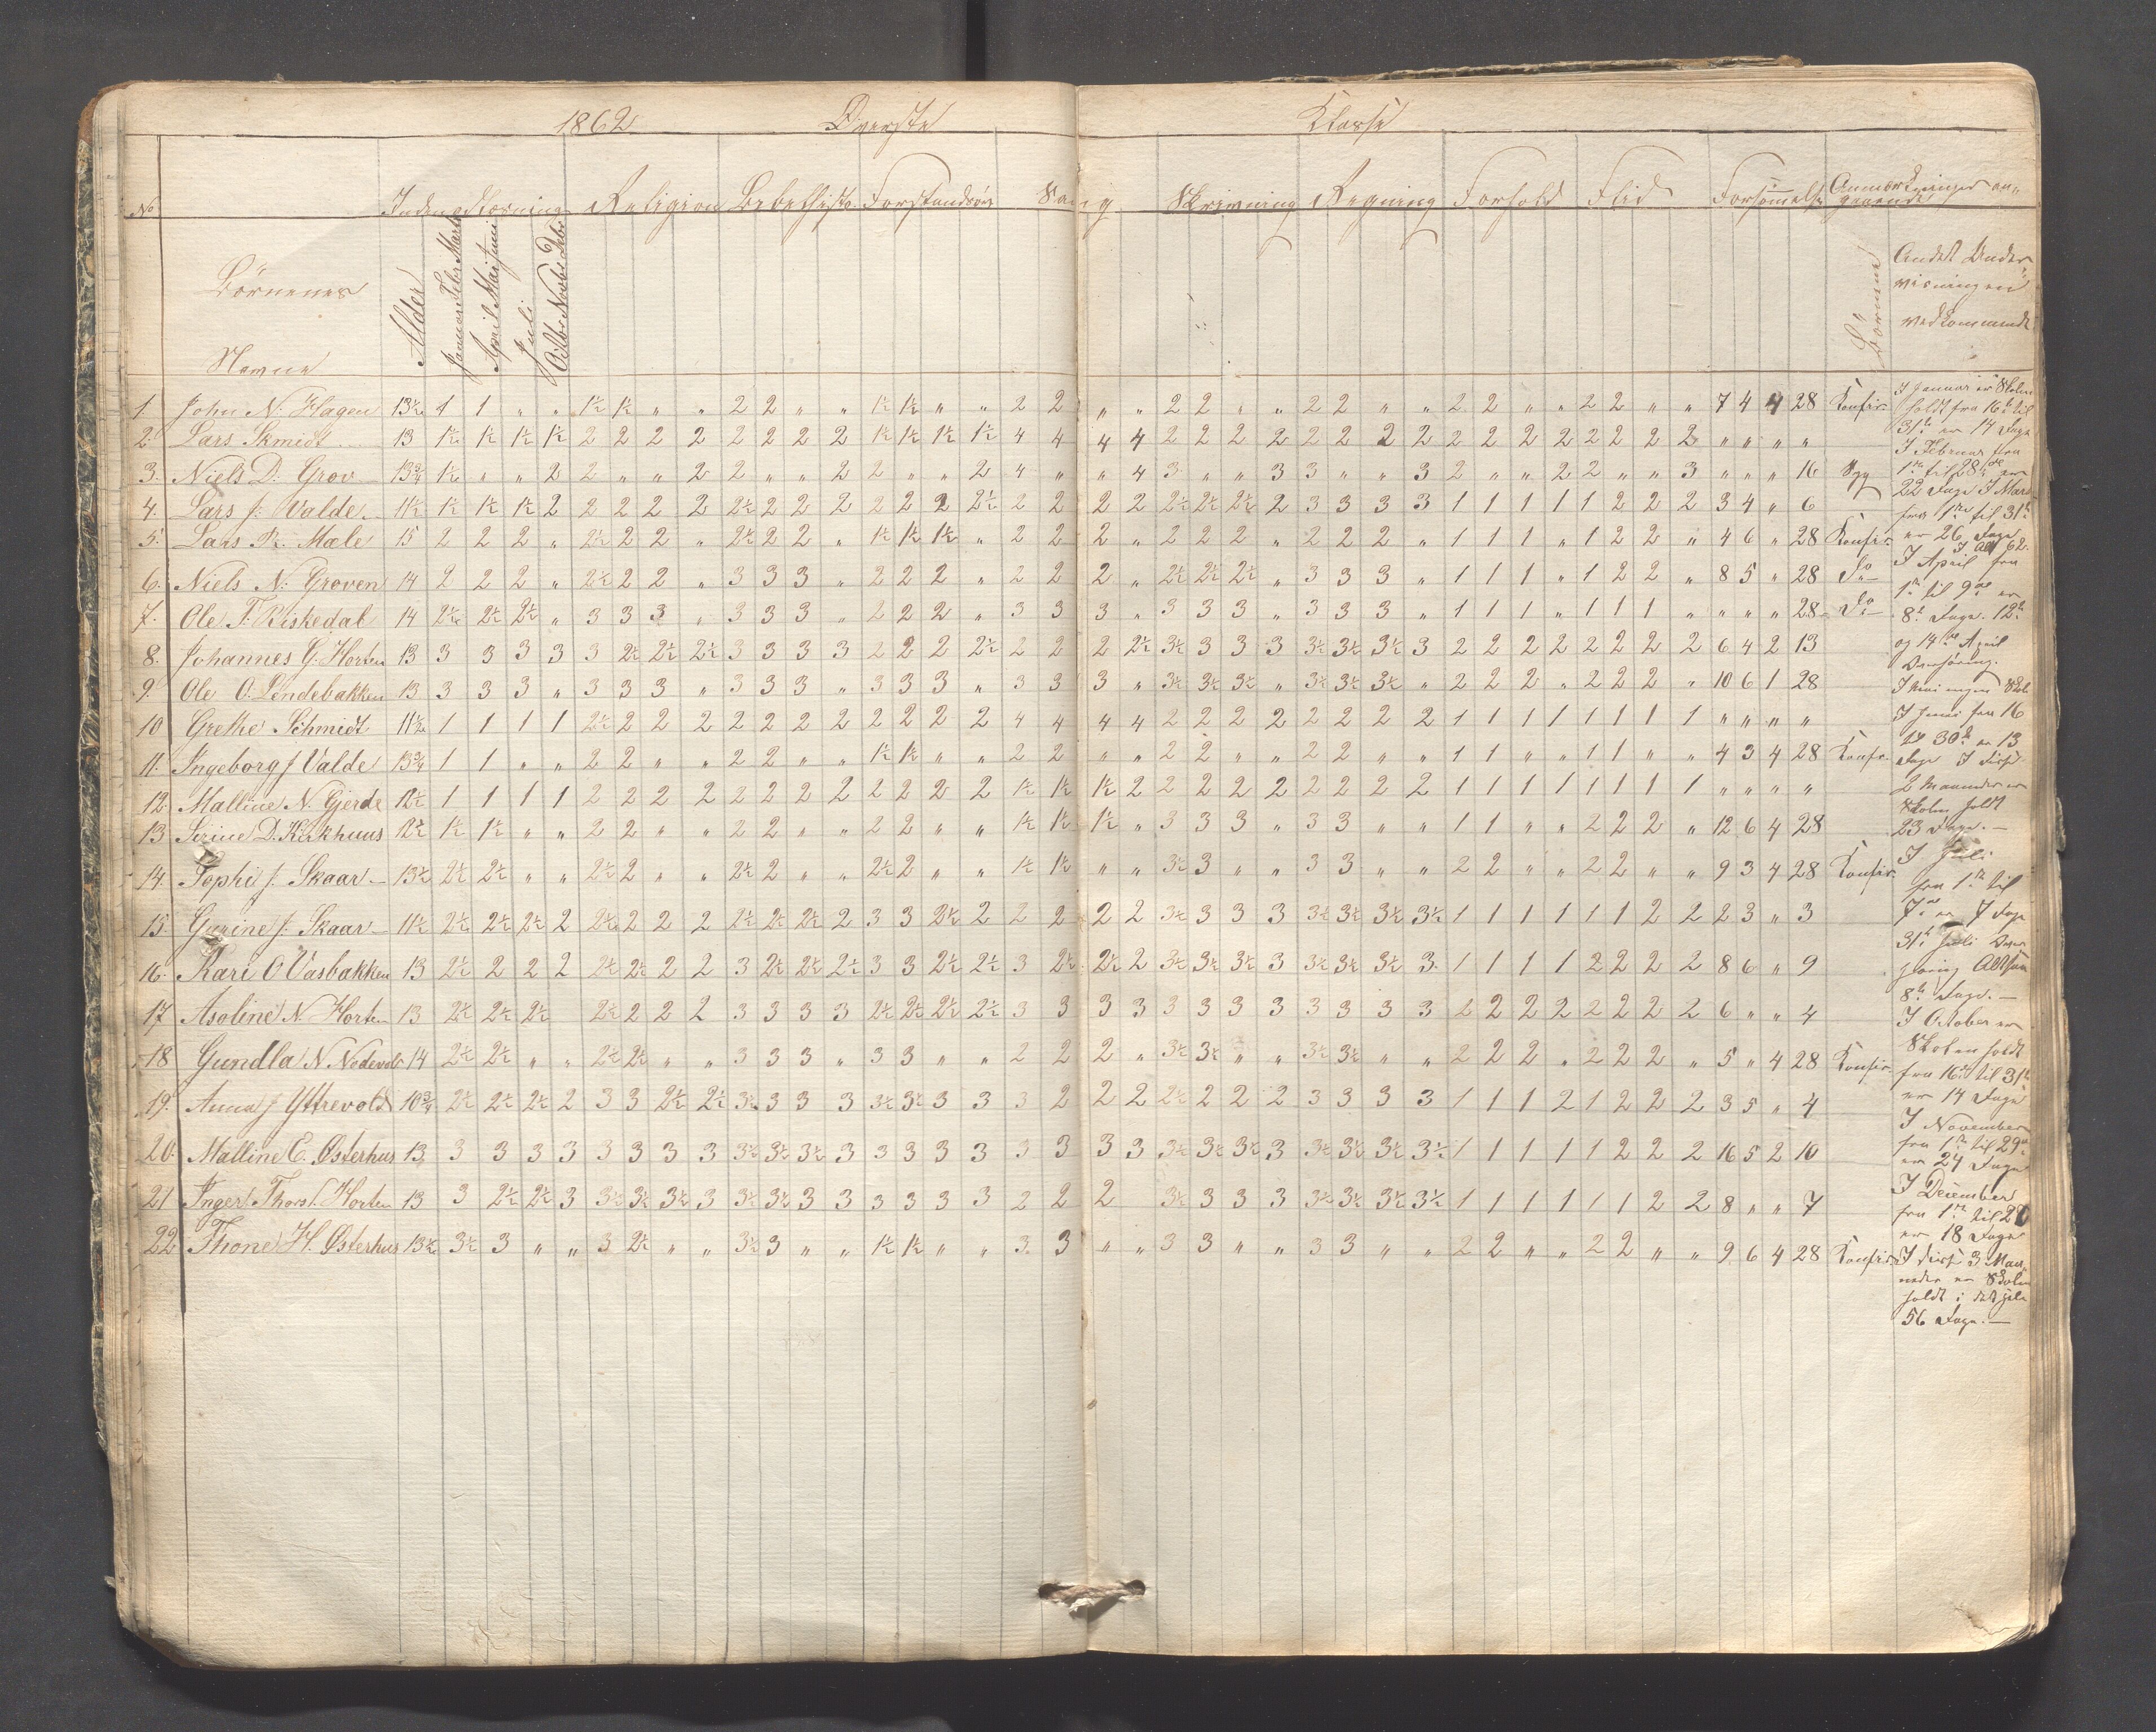 1862 Øverste Klasse
No Indenadlæsning Religion Bibelhisto. Forstandsøv Sang Skrivning Regning Forhold Flid Forsømmelse Anmærkninger an-
gaaende
Børnenes
Navne
Alder
Januar Feb Marts
April Mai Juni
Juli
Oktbr Novbr Debr
Børnene
Andet Under
visningen
vedkommende
1. John N. Hagen 13½ 1 1 " " 1½ 1½ " " 2 2 " " 1½ 1½ " " 2 2 " " 2 2 " " 2 2 " " 2 2 " " 2 2 " " 7 4 4 28 Konfir.
2. Lars Skmidt 13 1½ 1½ 1½ 1½ 2 2 2 2 2 2 2 2 1½ 1½ 1½ 1½ 4 4 4 4 2 2 2 2 2 2 2 2 2 2 2 2 2 2 2 2 " " " "
3. Niels D. Grov 13¾ 1½ " " 2 2 " " 2 2 " " 2 2 " " 2 4 " " 4 3 " " 3 3 " " 3 2 " " 2 2 " " 3 " " " 16 Syg
4. Lars J. Valde 11½ 1½ 1½ 1½ 2 2 2 2 2 2½ 2 2 2 2 2 2 2½ 2 2 2 2 2½ 2½ 2½ 2 3 3 3 3 1 1 1 1 1 2 2 2 3 4 " 6
5. Lars R. Mæle 15 2 2 2 " 2½ 2 2 " 2½ 2 2 " 1½ 1½ 1½ " 2 2 2 " 2 2 2 " 2 2 2 " 1 1 1 " 1 2 2 " 4 6 " 28 Konfir.
6. Niels N. Groven 14 2 2 2 " 2½ 2 2 " 3 3 3 " 2 2 2 " 2 2 2 " 2½ 2½ 2½ " 3 3 3 " 1 1 1 " 1 2 2 " 8 5 " 28 Do
7. Ole T. Riskedal 14 2½ 2½ 2½ " 3 3 3 " 3 3 3 " 2 2 2 " 3 3 3 " 3 3 3 " 3 3 3 " 1 1 1 " 1 1 1 " " " " 28 Do
8. Johannes G. Horten 13 3 3 3 3 3 2½ 2½ 2½ 3 3 3 3 2 2 2 2½ 2 2 2 2½ 3½ 3 3 3 3½ 3½ 3½ 3 2 2 2 2 2 2 2 2 6 4 2 13
9. Ole O. Lendebakken 13 3 3 3 " 3 3 3 " 3 3 3 " 3 3 3 " 3 3 3 " 3½ 3½ 3½ " 3½ 3½ 3½ " 2 2 2 " 2 2 2 " 10 6 1 28
10 Grethe Schmidt 11½ 1 1 1 1 2½ 2 2 2 2 2 2 2 2 2 2 2 4 4 4 4 2 2 2 2 2 2 2 2 1 1 1 1 1 1 1 1 " " " "
11. Ingeborg J Valde 13¾ 1 1 " " 2 2 " " 2 2 " " 1½ 1½ " " 2 2 " " 2 2 " " 2 2 " " 1 1 " " 1 1 " " 4 3 4 28 Konfir.
12. Malline N. Gjerde 12½ 1 1 1 1 2 2 2 2 2 2 2 2 2 2 2 2 1½ 1½ 1½ 2 2 2 2 2 2 2 2 2 1 1 1 1 1 1 1 1 " " " "
13 Sirine D. Kirkhuus 12½ 1½ 1½ " " 2 2 " " 2 2 " " 2 2 " " 1½ 1½ 1½ " 3 3 3 " 3 3 " " 1 1 " " 2 2 2 " 12 6 4 28
14. Sophi J. Skaar 13½ 2½ 2½ " " 2½ 2 " " 2½ 2 " " 2½ 2 " " 1½ 1½ " " 3½ 3 " " 3 3 " " 2 2 " " 2 2 " " 9 3 4 28 Konfir.
15. Gurine J. Skaar 11½ 2½ 2½ 2½ 2 2½ 2 2 2 2½ 2½ 2½ 2 3 3 2½ 2 2 2 2 2 3½ 3 3 3 3½ 3½ 3½ 3½ 1 1 1 1 1 1 2 2 2 3 " 3
16. Kari O Vasbakken 13 2½ 2 2 2 2½ 2½ 2 2 3 2½ 2½ 2½ 3 3 2½ 2½ 3 2½ 2½ 2 3½ 3½ 3½ 3 3½ 3½ 3½ 3 1 1 1 1 2 2 2 2 8 6 " 9
17 Asoline N. Horten 13 2½ 2½ 2½ 2½ 2 2 2 3 3 3 3 2½ 2½ 2½ 2½ 3 3 3 3 3 3 3 3 3 3 3 3 2 2 2 2 2 2 2 2 6 " " 4
18 Gundla N. Nedrevold 14 2½ 2½ " " 2½ 2½ " " 3 3 3 " 3 3 " " 2 2 2 " 3½ 3½ " " 3½ 3½ " " 2 2 2 " 2 2 2 " 5 " 4 28 Konfir.
19. Anna J Yttrevold 10¾ 2½ 2½ 2½ 2 3 3 2½ 2½ 3½ 3 3 3 3½ 3½ 3 3 3 2 2 2 2½ 2 2 2 3 3 3 3 1 1 1 2 1 2 2 2 3 5 " 4
20. Malline E. Østerhus 13 3 3 3 3 3 3 3 3 3½ 3½ 3½ 3 3 3 3 3 3 3 3 3 3½ 3½ 3½ 3 3½ 3½ 3½ 3½ 1 1 1 1 1 2 2 2 16 5 2 10
21 Inger Thorst. Horten 13 3 2½ 2½ 3 3½ 3½ 3½ 3 3½ 3½ 3 3 3 3 3 3 2 2 2 3½ 3 3 3 3½ 3½ 3½ 3½ 1 1 1 1 1 1 2 2 8 " " 7
22 Thone H. Østerhus 13½ 3½ 3 " " 3 2½ " " 3½ 3 " " 1½ 1½ " " 3 3 " " 3 3 " " 3 3 " " 2 2 " " 2 2 " " 9 6 4 28 Konfir.
I Januar er Skolen
holdt fra 16de til
31te er 14 Dage
I Februar fra
1ste til 28de er
22 Dage I Marts
fra 1ste til 31te
er 26 Dage
I Alt 62.
I April fra
1ste til 9de er
8te Dage. 12te
og 14de April
Overhøring.
I Mai ingen Skole
I Juni fra 16
til 30te er 13
Dage I disse
2 Maaneder er
Skolen holdt
23 Dage.
I Juli
fra 1ste til
7de er 7 Dage
31te Juli Over
høring Altsaa
8te Dage.
I October er
Skolen holdt
fra 16de til 31te
er 14 Dage
I November
fra 1ste til 29de
er 24 Dage
I December
fra 1ste til 20
er 18 Dage
I disse 3 Maa
neder er Skolen
holdt i det hele
56 Dage.